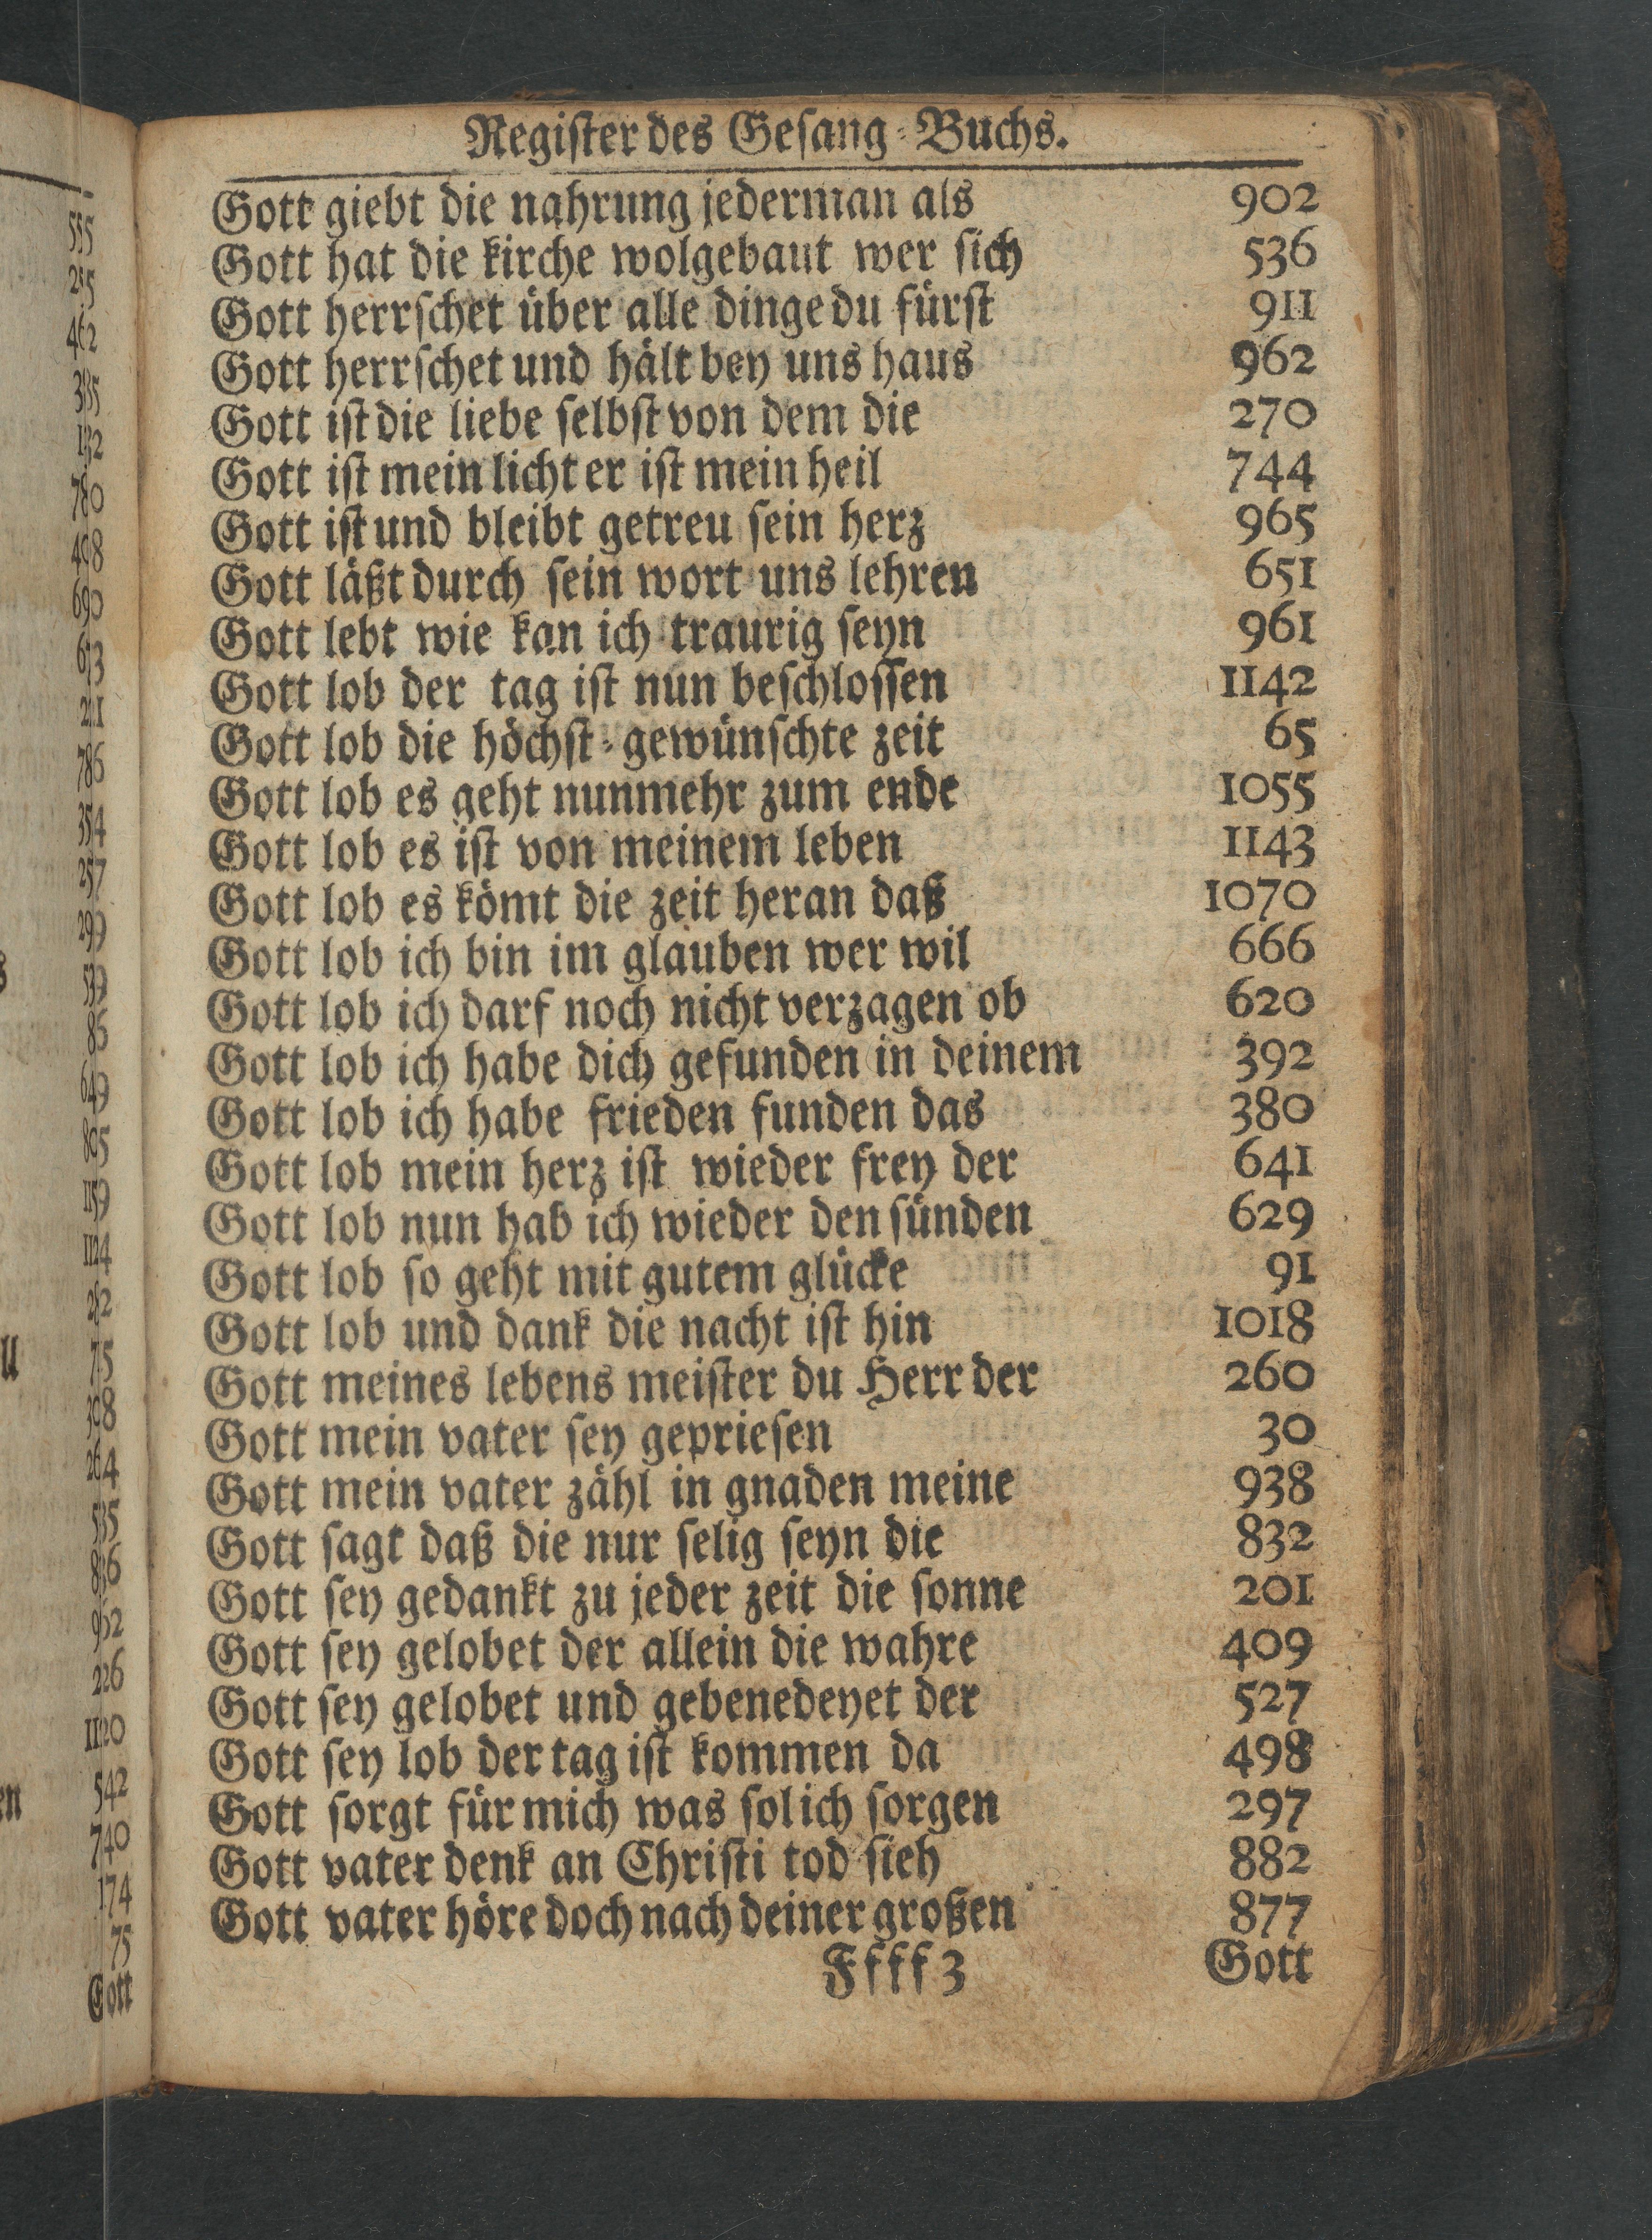 Regiſter des Geſang-Buchs.
Gott giebt die nahrung jederman als 902
Gott hat die kirche wolgebaut wer ſich 536
Gott herrſchet über alle dinge du fürſt 911
Gott herrſchet und hält bey uns haus 962
Gott iſt die liebe ſelbſt von dem die 270
Gott iſt mein licht er iſt mein heil 744
Gott iſt und bleibt getreu ſein herz 965
Gott läßt durch ſein wort uns lehren 651
Gott lebt wie kan ich traurig ſeyn 961
Gott lob der tag iſt nun beſchloſſen 1142
Gott lob die höchſt-gewünſchte zeit 65
Gott lob es geht nunmehr zum ende 1055
Gott lob es iſt von meinem leben 1143
Gott lob es kömt die zeit heran daß 1070
Gott lob ich bin im glauben wer wil 666
Gott lob ich darf noch nicht verzagen ob 620
Gott lob ich habe dich gefunden in deinem 392
Gott lob ich habe frieden funden das 380
Gott lob mein herz iſt wieder frey der 641
Gott lob nun hab ich wieder den ſünden 629
Gott lob ſo geht mit gutem glücke 91
Gott lob und dank die nacht iſt hin 1018
Gott meines lebens meiſter du Herr der 260
Gott mein vater ſey geprieſen 30
Gott mein vater zähl in gnaden meine 938
Gott ſagt daß die nur ſelig ſeyn die 832
Gott ſey gedankt zu jeder zeit die ſonne 201
Gott ſey gelobet der allein die wahre 409
Gott ſey gelobet und gebenedeyet der 527
Gott ſey lob der tag iſt kommen da 498
Gott ſorgt für mich was ſol ich ſorgen 297
Gott vater denk an Chriſti tod ſieh 882
Gott vater höre doch nach deiner großen 877
Ffff 3 Gott